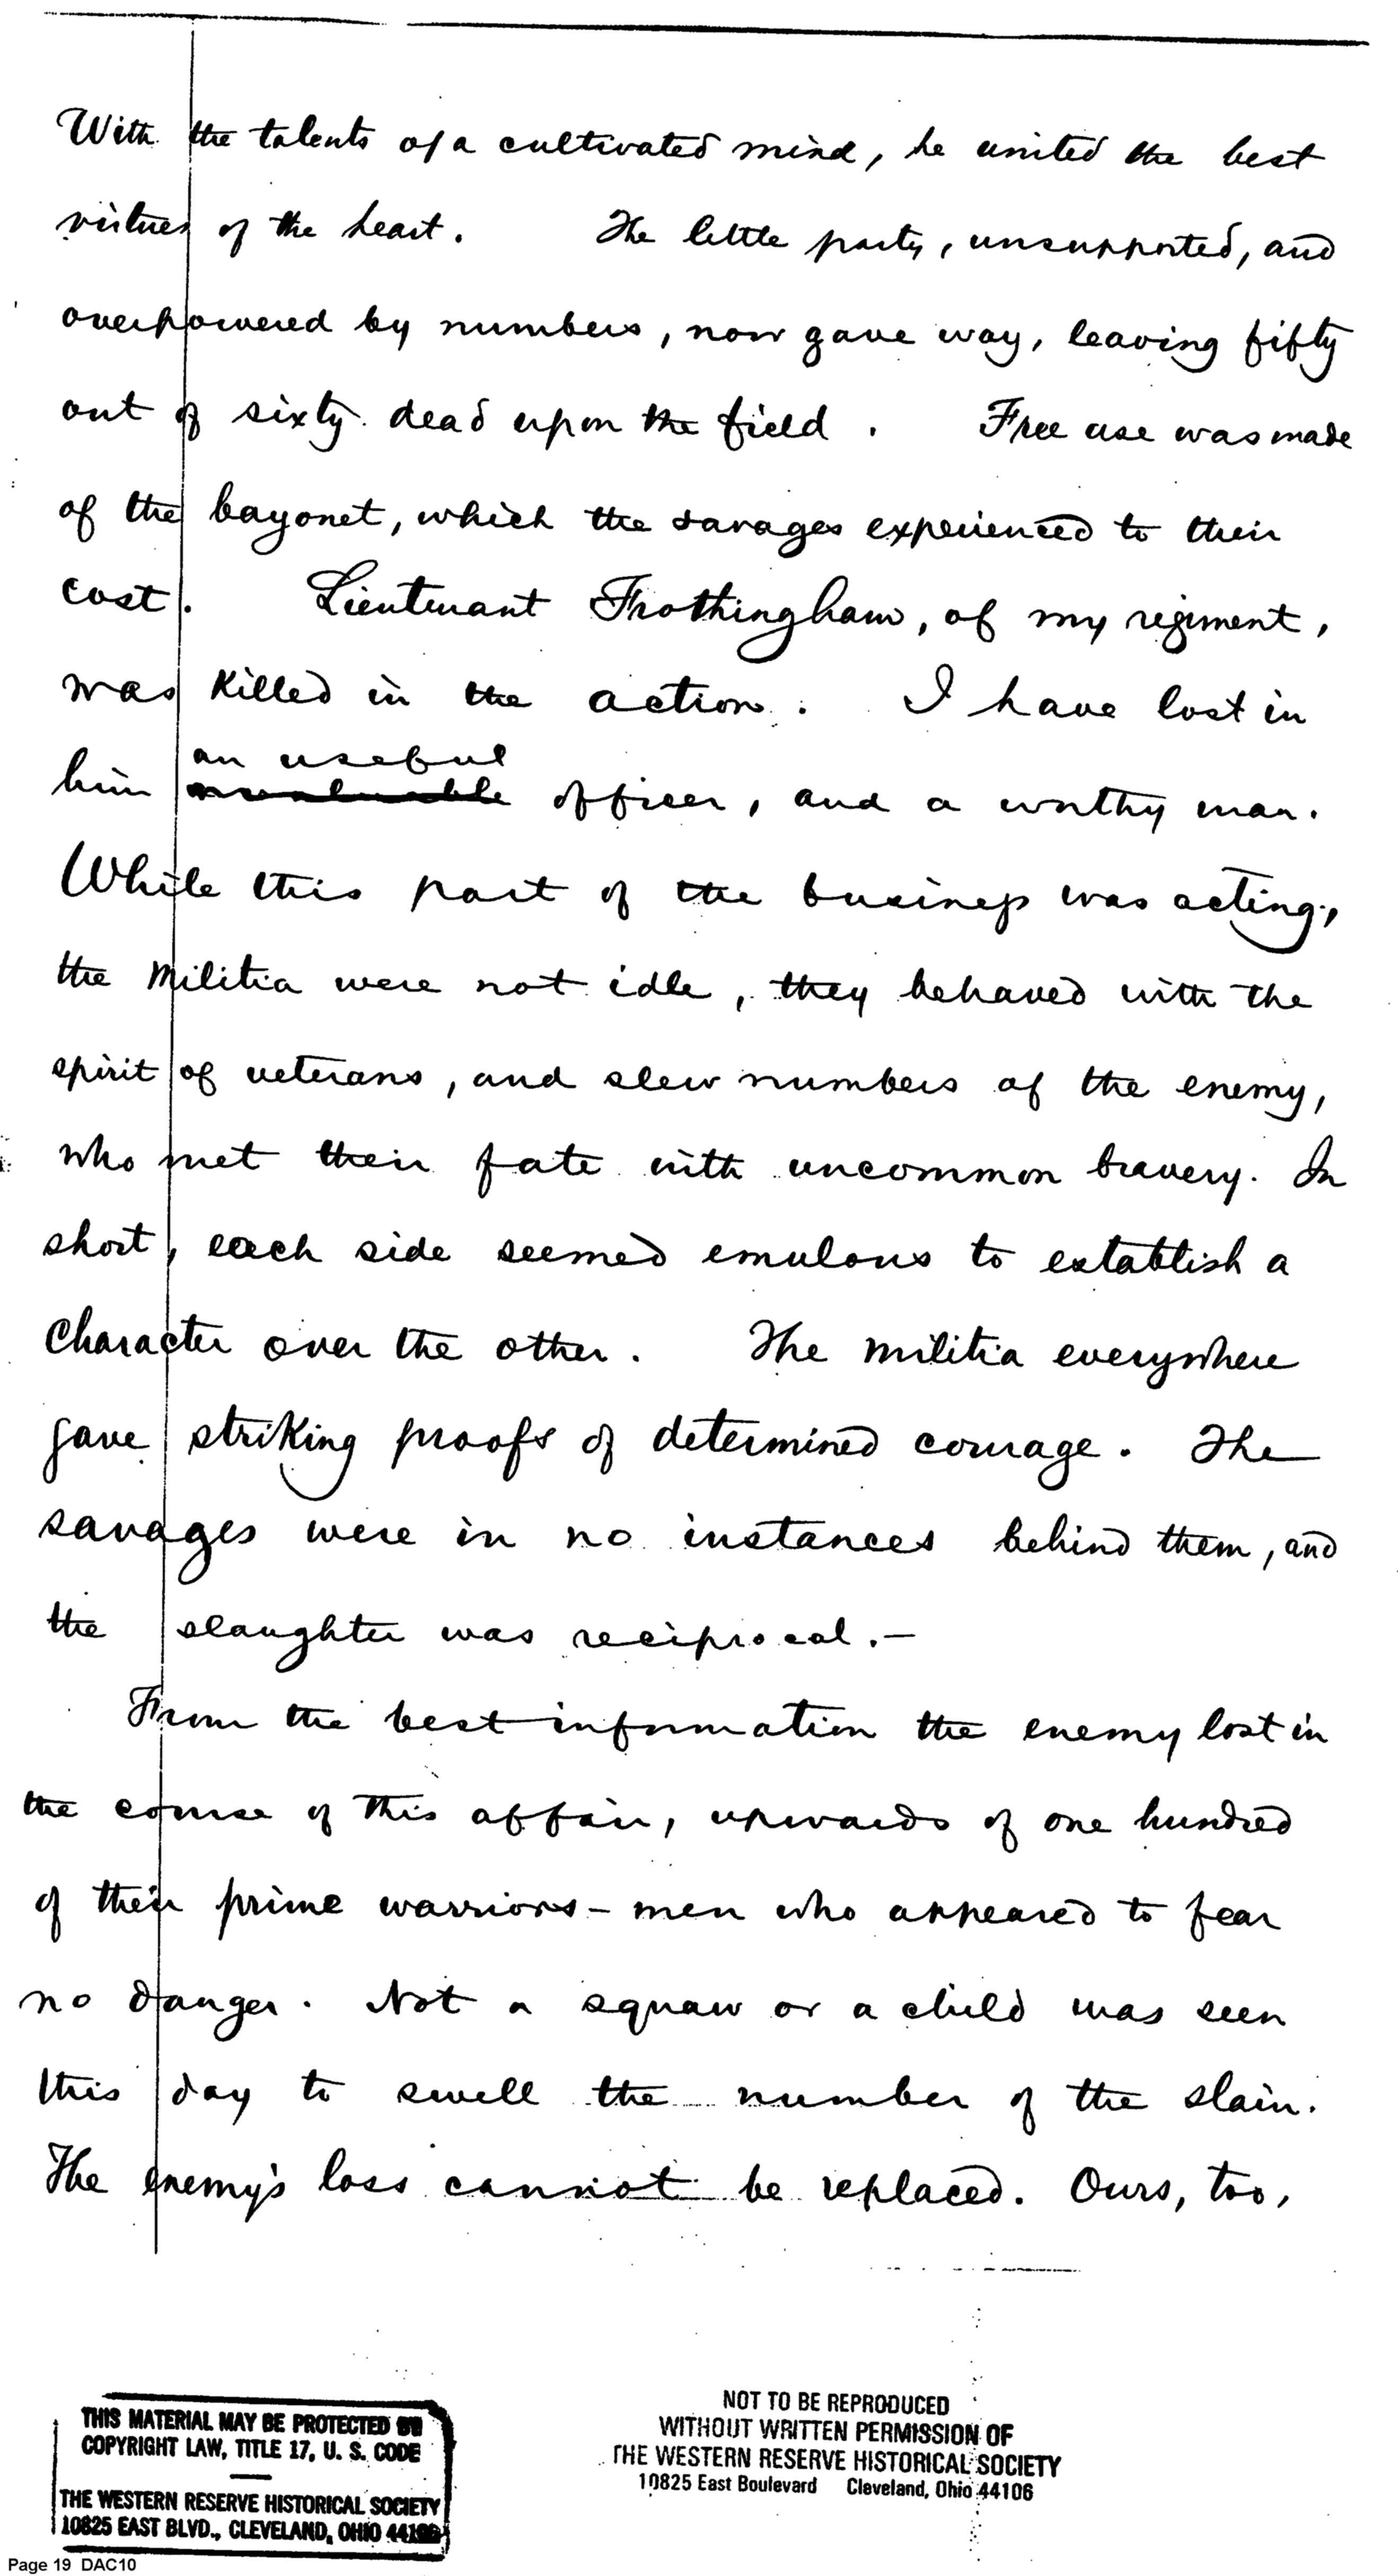 With the talents of a cultivated mind, he united the best
virtues of the heart. The little party, unsupported, and
overpowered by numbers, now gave way, leaving fifty
out of sixty dead upon the field. Free use was made
of the bayonet, which the savages experienced to their
cost. Lieutenant Frothingham, of my regiment,
was killed in the action. I have lost in
an useful
him officer, and a worthy man.
While this part of the business was acting,
the militia were not idle, they behaved with the
spirit of veterans, and slew numbers of the enemy,
who met their fate with uncommon bravery. In
short, each side seemed emulous to establish a
character over the other. The militia everywhere
gave striking proofs of determined courage. The
savages were in no instances behind them, and
the slaughter was reciprocal.—
From the best information the enemy lost in
the course of this affair, upwards of one hundred
of their prime warriors – men who appeared to fear
no danger. Not a squaw or a child was seen
this day to swell the number of the slain.
The enemy's loss cannot be replaced. Ours, too,
THIS MATERIAL MAY BE PROTECTED BY
COPYRIGHT LAW, TITLE 17, U. S. CODE
THE WESTERN RESERVE HISTORICAL SOCIETY
10825 EAST BLVD., CLEVELAND, OHIO 44106
NOT TO BE REPRODUCED
WITHOUT WRITTEN PERMISSION OF
THE WESTERN RESERVE HISTORICAL SOCIETY
10825 East Boulevard Cleveland, Ohio 44106
Page 19 DAC10